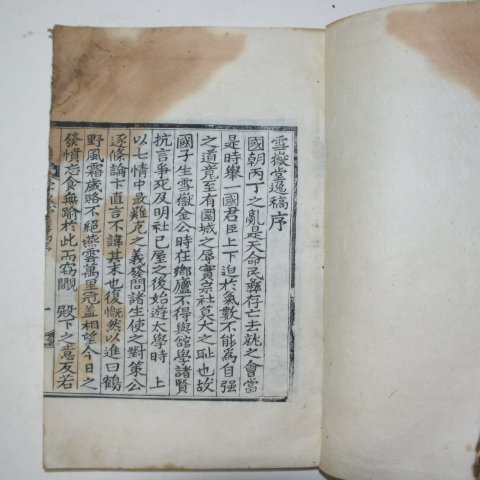 雪嶽堂逸稿序
國朝丙丁之亂是天命民彛存亡去就之會當
是時擧一國君臣上下迫於氣數不能爲自强
之道竟至有圍城之辱實宗社莫大之恥也故
國子生雪嶽金公時在鄕廬不得與館學諸賢
抗言爭死及明社已屋之後始遊太學時 上
以七情中最難克之義發問諸生使之對策公
逐條論卞直言不諱其末也復慨然以進曰鶴
野風霜歲暮不絕燕雲萬里冠盖相望今日之
發憤忘食無踰於此而窃覸 殿下之意友若